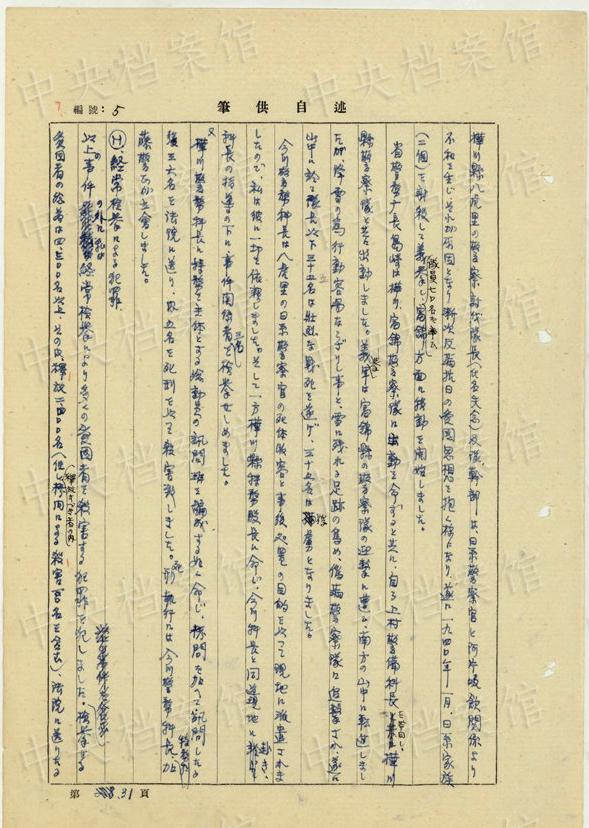 述自供筆
編號：5
樺川縣八虎里の警察討伐隊長(氏名失念)及彼、幹部は日系警察官と阿片吸飲関係より
不和を生じそれが原因となり漸次反満抗日の愛国思想を抱く様になり、遂に一九四〇年一月、日系家族
(二個)を射殺して隊員七〇名を率ひ義挙し、富錦方面に移動を開始しました。
省警務庁長島崎は樺川、富錦警察隊に出動を命ずると共に、自ら上村警備科長を帯同し、樺川
縣警察隊と共に出動しました。義挙軍は富錦縣の警察隊の迎撃に遭ひ、南方の山中に転進しまし
たが、降雪の為行動容易ならざりし事と、雪に残れる足跡の為め、偽満警察隊に追撃され、遂に
山中に於て隊長以下三十五名は壮烈な戦死を遂げ、三十五名は俘虜となりました。
今川警務科長は八虎里の日系警察官の死体収容と事後処置の目的を以つて現地に派遣されま
したので、私は彼に一切を依頼しました。そして一方樺川縣特務股長に命じ、今川科長と同道現地に赴き、
科長の指導の下に事件関係者三名を検挙せしめました。
又樺川警務科長に特務を主体とする総動員の訊問班を編成する如く命じ、拷問を加へて訊問したる
後三六名を法院に送り、内五名を死刑を以つて殺害致しました。死刑執行には今川警務科長、加
藤警長が立會しました。
(H)、経常検挙による犯罪
以上の事件の外に私は経常検挙により多くの愛国者を殺害する犯罪を犯しました。検挙する
愛国者の総員は四、五〇〇名以上、その内、釈放二、四〇〇名(但し拷問による殺害百名を含む)、法院に送りたる
第 31 頁
中央档案馆